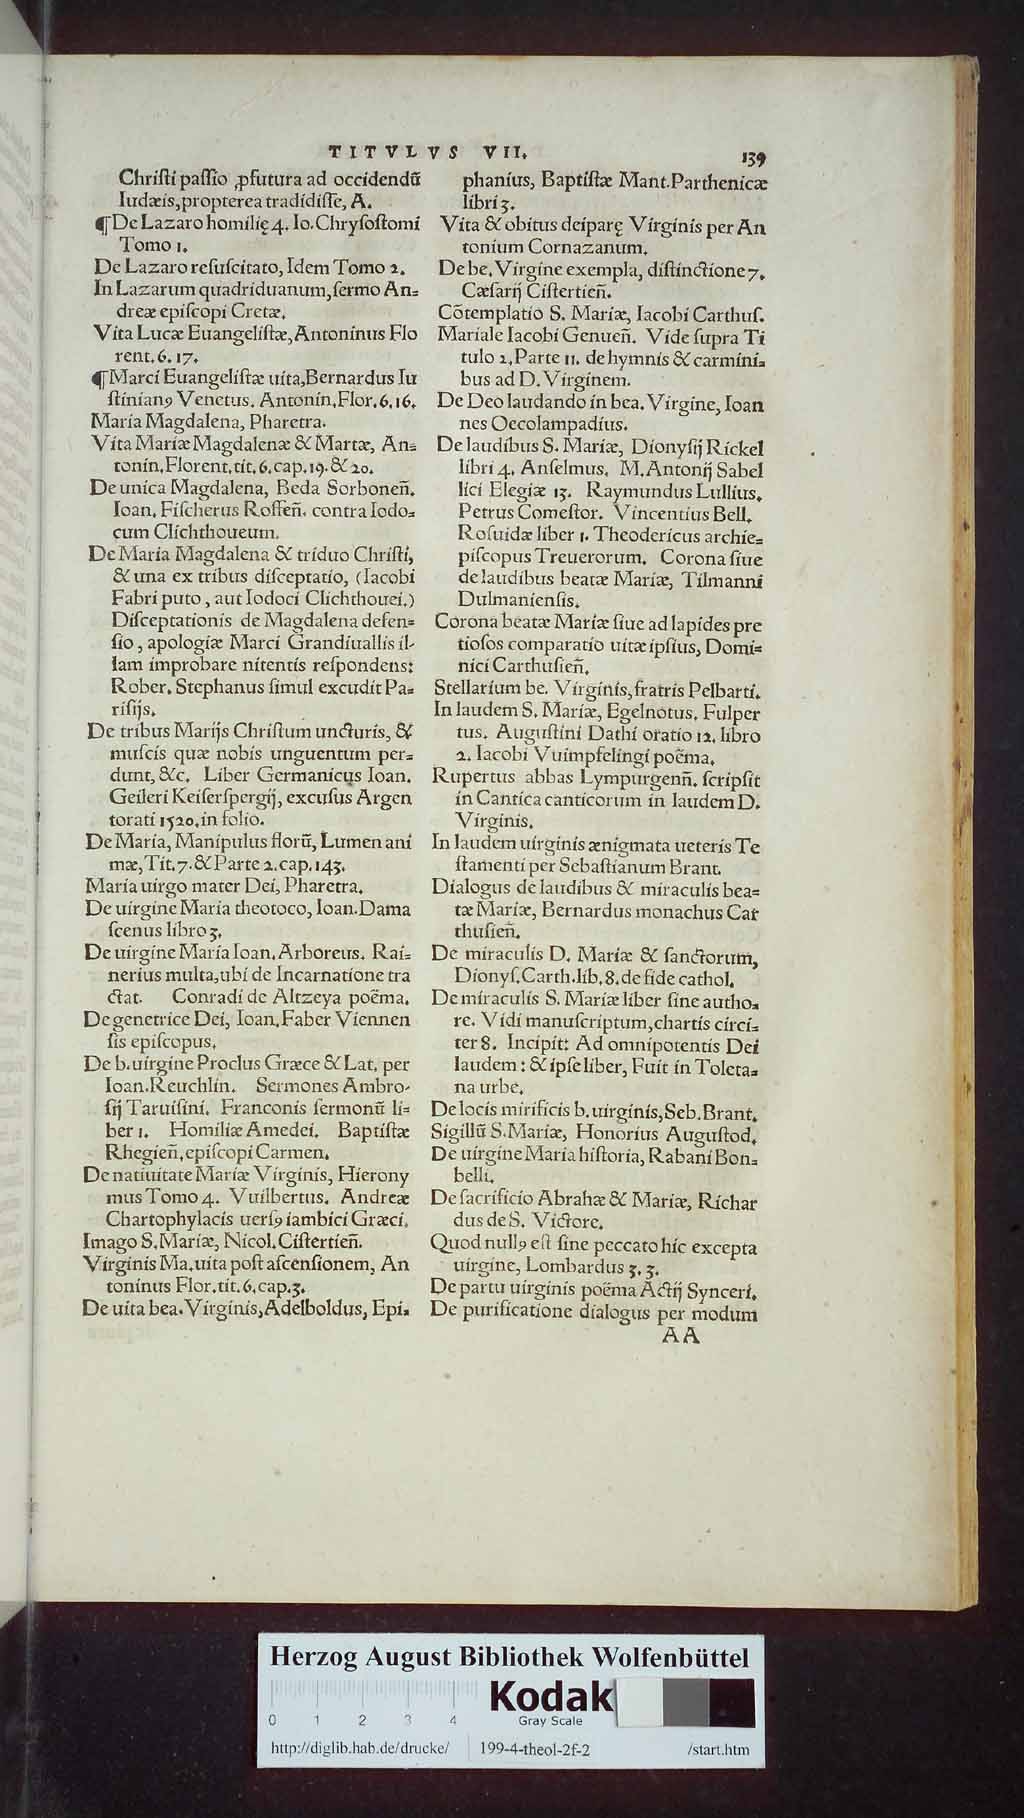 TITVLVS VII.
139
Chriſti paſſio ꝓfutura ad occidendū
Iudæis, propterea tradidiſſe, A.
¶De Lazaro homilię 4. Io. Chryſoſtomi
Tomo 1.
De Lazaro reſuſcitato, Idem Tomo 2.
In Lazarum quadriduanum, ſermo An=
dreæ epiſcopi Cretæ.
Vita Lucæ Euangeliſtæ, Antoninus Flo
rent. 6. 17.
¶Marci Euangeliſtæ uita, Bernardus Iu
ſtinianꝰ Venetus. Antonin. Flor. 6. 16.
Maria Magdalena, Pharetra.
Vita Mariæ Magdalenæ & Martæ, An=
tonin. Florent. tit. 6. cap. 19. & 20.
De unica Magdalena, Beda Sorboneñ.
Ioan. Fiſcherus Roffeñ. contra Iodo=
cum Clichthoueum.
De Maria Magdalena & triduo Chriſti,
& una ex tribus diſceptatio, (Iacobi
Fabri puto, aut Iodoci Clichthouei.)
Diſceptationis de Magdalena defen=
ſio, apologiæ Marci Grandiuallis il-
lam improbare nitentis reſpondens:
Rober. Stephanus ſimul excudit Pa=
riſijs.
De tribus Marijs Chriſtum uncturis, &
muſcis quæ nobis unguentum per=
dunt, &c. Liber Germanicus Ioan.
Geileri Keiſerſpergij, excuſus Argen
torati 1520. in folio.
De Maria, Manipulus florū, Lumen ani
mæ, Tit. 7. & Parte 2. cap. 143.
Maria uirgo mater Dei, Pharetra.
De uirgine Maria theotoco, Ioan. Dama
ſcenus libro 3.
De uirgine Maria Ioan. Arboreus. Rai=
nerius multa, ubi de Incarnatione tra
ctat. Conradi de Altzeya poëma.
De genetrice Dei, Ioan. Faber Viennen
ſis epiſcopus.
De b. uirgine Proclus Græce & Lat. per
Ioan. Reuchlin. Sermones Ambro-
ſij Taruiſini. Franconis ſermonū li=
ber 1. Homiliæ Amedei. Baptiſtæ
Rhegieñ. epiſcopi Carmen.
De natiuitate Mariæ Virginis, Hierony
mus Tomo 4. Vuilbertus. Andreæ
Chartophylacis uerſꝰ iambici Græci.
Imago S. Mariæ, Nicol. Ciſtertieñ.
Virginis Ma. uita poſt aſcenſionem, An
toninus Flor. tit. 6. cap. 3.
De uita bea. Virginis, Adelboldus, Epi=
phanius, Baptiſtæ Mant. Parthenicæ
libri 3.
Vita & obitus deiparę Virginis per An
tonium Cornazanum.
De be. Virgine exempla, diſtinctione 7.
Cæſarij Ciſtertieñ.
Cōtemplatio S. Mariæ, Iacobi Carthuſ.
Mariale Iacobi Genueñ. Vide ſupra Ti
tulo 2. Parte 11. de hymnis & carmini=
bus ad D. Virginem.
De Deo laudando in bea. Virgine, Ioan
nes Oecolampadius.
De laudibus S. Mariæ, Dionyſij Rickel
libri 4. Anſelmus. M. Antonij Sabel
lici Elegiæ 13. Raymundus Lullius.
Petrus Comeſtor. Vincentius Bell.
Roſuidæ liber 1. Theodericus archie=
piſcopus Treuerorum. Corona ſiue
de laudibus beatæ Mariæ, Tilmanni
Dulmanienſis.
Corona beatæ Mariæ ſiue ad lapides pre
tioſos comparatio uitæ ipſius, Domi=
nici Carthuſieñ.
Stellarium be. Virginis, fratris Pelbarti.
In laudem S. Mariæ, Egelnotus. Fulper
tus. Auguſtini Dathi oratio 12. libro
2. Iacobi Vuimpfelingi poëma.
Rupertus abbas Lympurgenñ. ſcripſit
in Cantica canticorum in laudem D.
Virginis.
In laudem uirginis ænigmata ueteris Te
ſtamenti per Sebaſtianum Brant.
Dialogus de laudibus & miraculis bea=
tæ Mariæ, Bernardus monachus Car
thuſieñ.
De miraculis D. Mariæ & ſanctorum,
Dionyſ. Carth. lib. 8. de fide cathol.
De miraculis S. Mariæ liber ſine autho=
re. Vidi manuſcriptum, chartis circi=
ter 8. Incipit: Ad omnipotentis Dei
laudem: & ipſe liber, Fuit in Toleta=
na urbe.
De locis mirificis b. uirginis, Seb. Brant.
Sigillū S. Mariæ, Honorius Auguſtod.
De uirgine Maria hiſtoria, Rabani Bon=
belli.
De ſacrificio Abrahæ & Mariæ, Richar
dus de S. Victore.
Quod nullꝰ eſt ſine peccato hic excepta
uirgine, Lombardus 3. 3.
De partu uirginis poëma Actij Synceri.
De purificatione dialogus per modum
AA
Herzog August Bibliothek Wolfenbüttel
Kodak
Gray Scale
0 1 2 3 4
http://diglib.hab.de/drucke/ 199-4-theol-2f-2 /start.htm